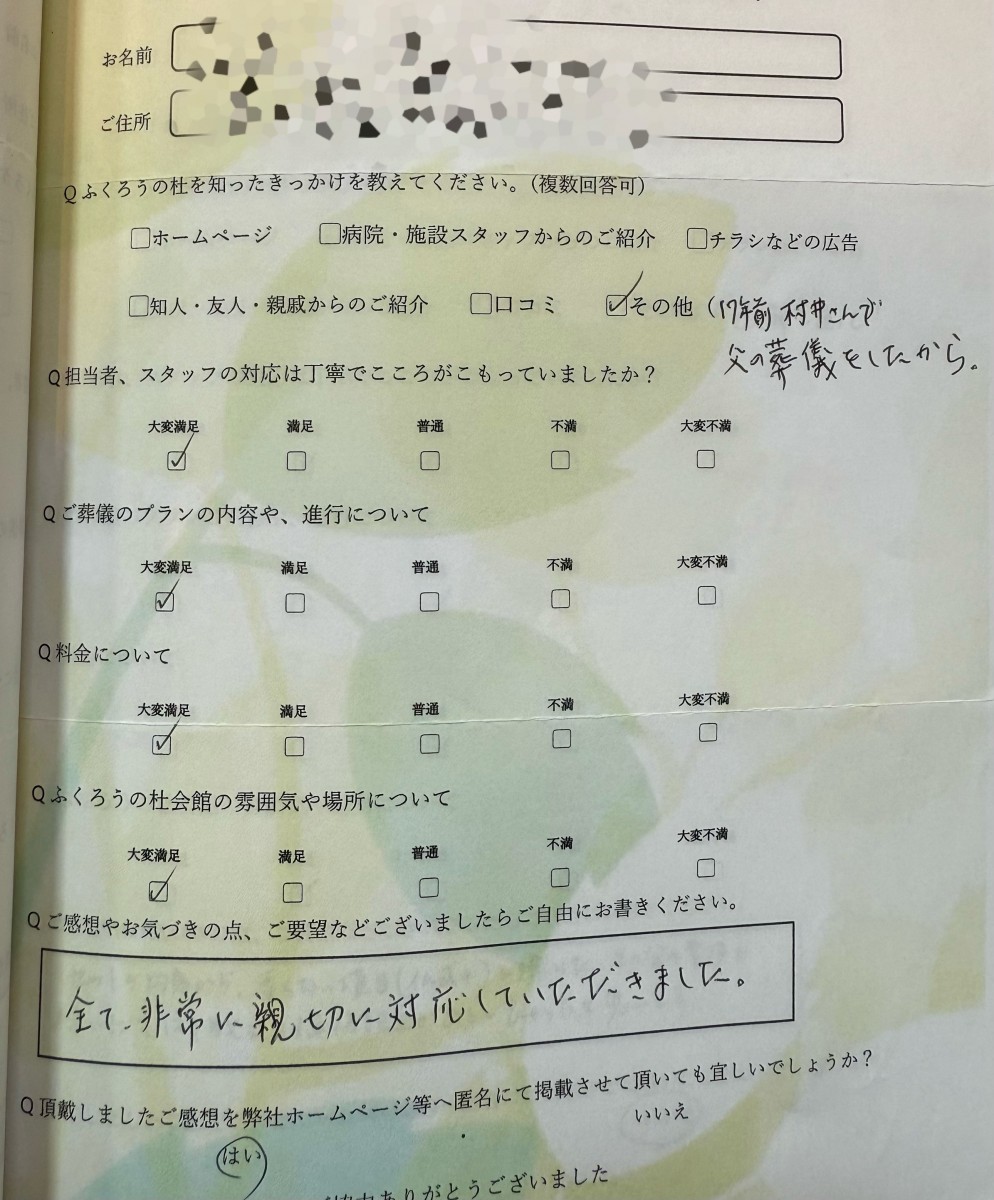 お名前
ご住所
Qふくろうの杜を知ったきっかけを教えてください。(複数回答可)
□ホームページ □病院・施設スタッフからのご紹介 □チラシなどの広告
□知人・友人・親戚からのご紹介 □口コミ ☑その他 (17年前 村井さんで
父の葬儀をしたから。
Q担当者、スタッフの対応は丁寧でこころがこもっていましたか?
大変満足 満足 普通 不満 大変不満
☑ □ □ □ □
Qご葬儀のプランの内容や、進行について
大変満足 満足 普通 不満 大変不満
☑ □ □ □ □
Q料金について
大変満足 満足 普通 不満 大変不満
☑ □ □ □ □
Qふくろうの杜会館の雰囲気や場所について
大変満足 満足 普通 不満 大変不満
☑ □ □ □ □
Qご感想やお気づきの点、ご要望などございましたらご自由にお書きください。
全て、非常に親切に対応していただきました。
Q頂戴しましたご感想を弊社ホームページ等へ匿名にて掲載させて頂いても宜しいでしょうか?
はい いいえ
ありがとうございました